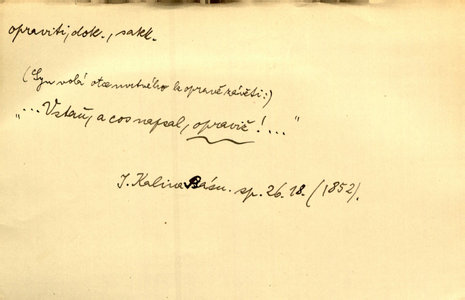 opraviti, dok., sakk.
(Syn volá otce mrtvého k opravě závěti:)
"... Vstaň, a cos napsal, opravič! ..."
J. Kalina Básn. sp. 26. 18. (1852).